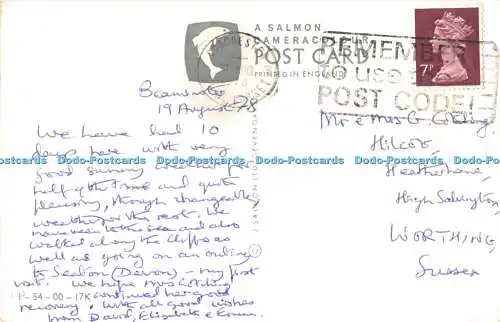 A SALMON
CAMERACOLOUR
POST CARD
PRINTED IN ENGLAND
REMEMBER
TO USE
POST CODE!
7P
Beaminster
19 August 78
We have had 10
days here with very
good sunny weather for
half of the time and quite
pleasing, though changeable
weather for the rest. We
have been to the sea and also
walked along the cliffs as
well as going on an outing
to Seaton (Devon) – my first
visit. We hope Mrs
continued her good
recovery. With all good wishes
from David, Elizabeth &
1-34-00-17K
J SALMON LTD SEVENOAKS
Mr & Mrs G
Hilcot,
High Salvington
WORTHING,
Sussex
Dodo-Postcards Dodo-Postcards Dodo-Postcards Dodo-Postcards Dodo-Postcards Dodo-Postcards